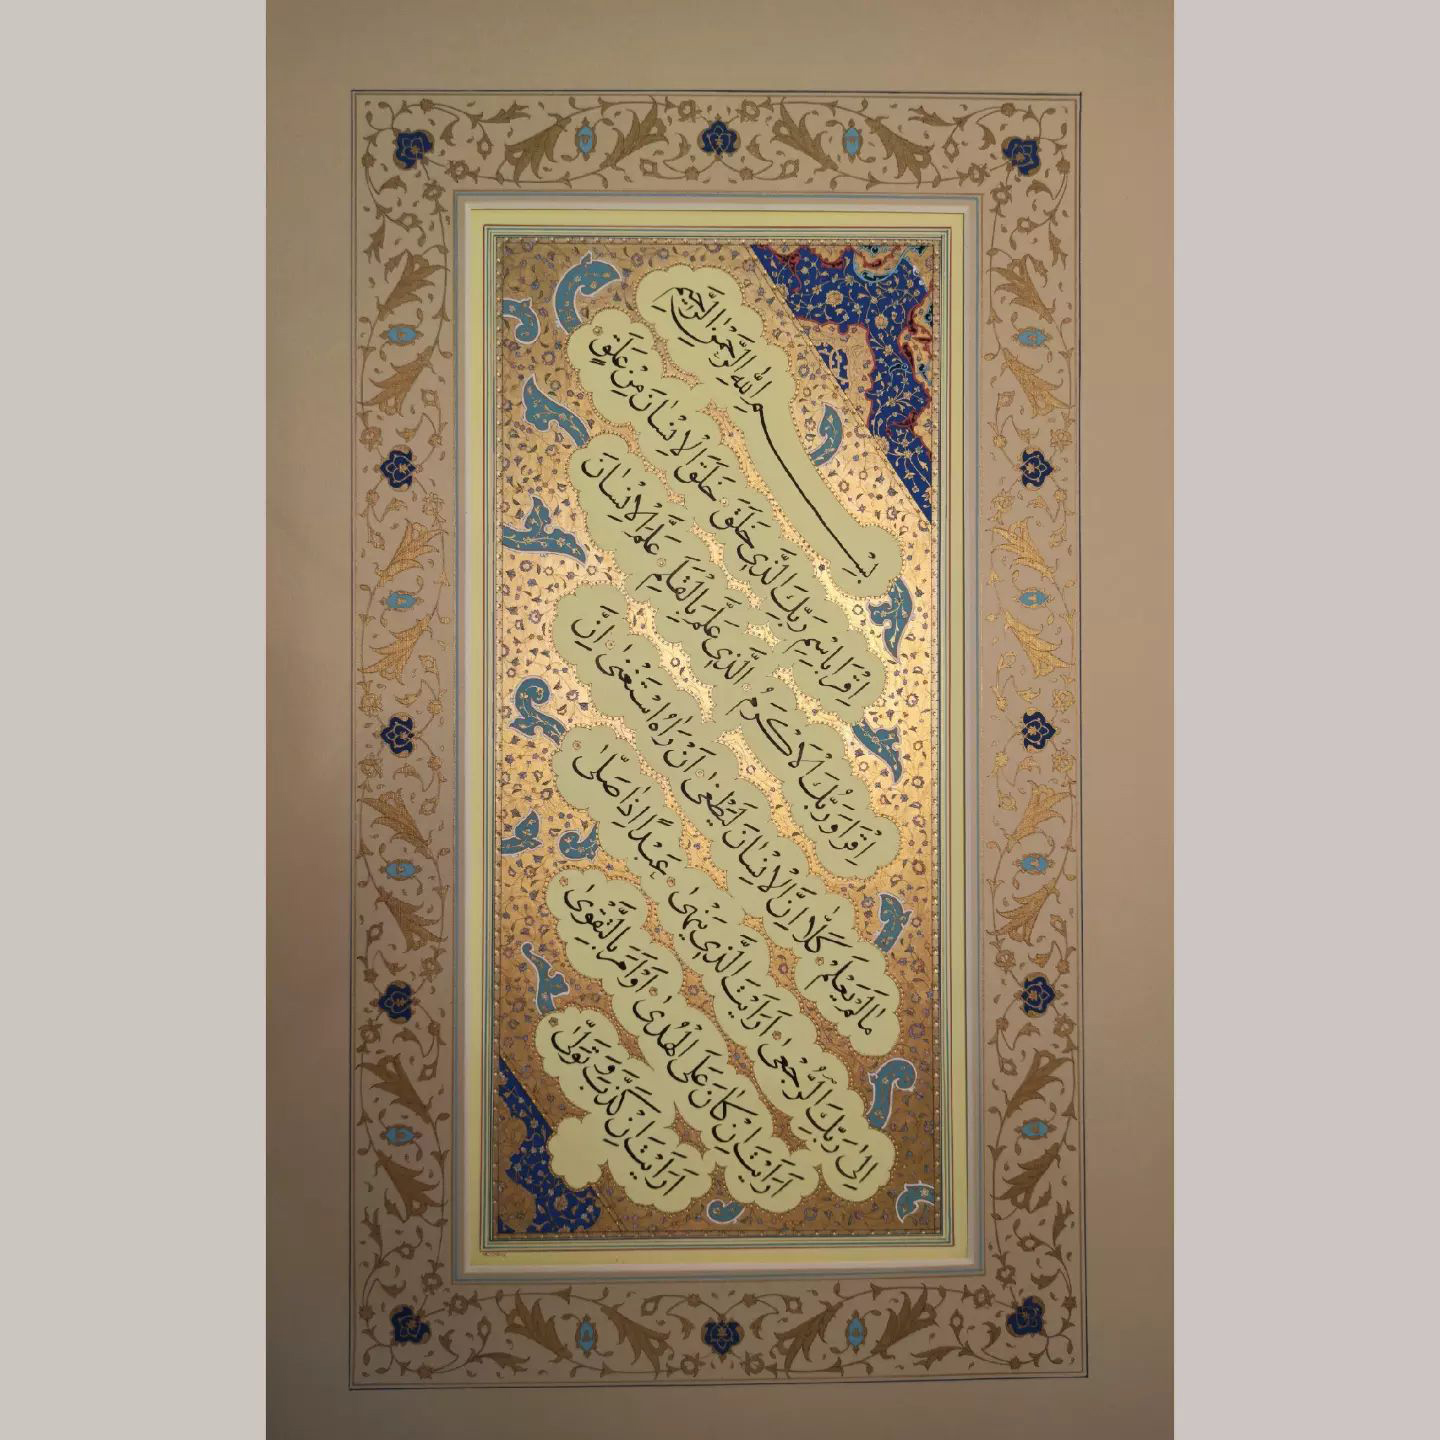 بِسْمِ اللهِ الرَّحْمٰنِ الرَّحِيمِ
اِقْرَاْ بِاسْمِ رَبِّكَ الَّذِي خَلَقَ خَلَقَ الْاِنْسٰانَ مِنْ عَلَقٍ
اِقْرَاْ وَ رَبُّكَ الْاَكْرَمُ الَّذِي عَلَّمَ بِالْقَلَمِ عَلَّمَ الْاِنْسٰانَ
مٰا لَمْ يَعْلَمْ كَلّٰا اِنَّ الْاِنْسٰانَ لَيَطْغىٰ اَنْ رَاٰهُ اسْتَغْنىٰ اِنَّ
اِلىٰ رَبِّكَ الرُّجْعىٰ اَرَاَيْتَ الَّذِي يَنْهىٰ عَبْدًا اِذٰا صَلّٰى
اَرَاَيْتَ اِنْ كٰانَ عَلَى الْهُدىٰ اَوْ اَمَرَ بِالتَّقْوىٰ
اَرَاَيْتَ اِنْ كَذَّبَ وَ تَوَلّٰى